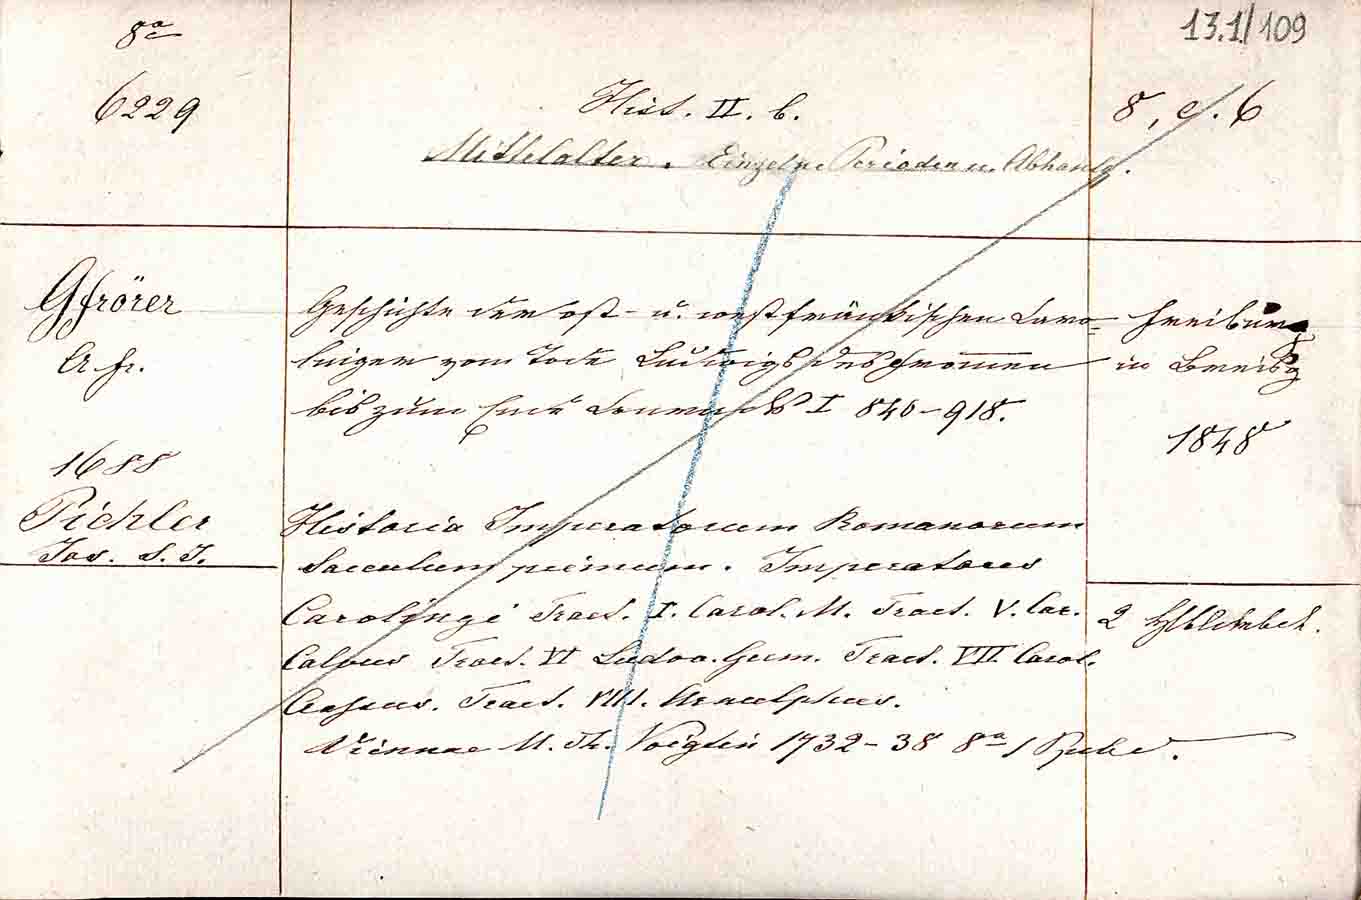 8ᵃ
13.1/109
6229
Hist. II. b.
8, c/. 6
Mittelalter. Einzelne Perioden u. Abhandlg.
Gfrörer
A. Fr.
Geschichte der ost- u. westfränkischen Caro=
linger vom Tode Ludwigs des Frommen
bis zum Ende Conrads I 840-918.
Freiburg
in Breisg
1848
1688
Pichler
Jos. S. J.
Historia Imperatorum Romanorum
Saeculum primum. Imperatores
Carolingi Tract. I. Carol. M. Tract. V. Car.
Calvus Tract. VI Ludov. Germ. Tract. VII. Carol.
Crassus. Tract. VIII. Arnulphus.
Viennae M. Th. Voigtin 1732-38 8ᵃ
2 Hbldrbd.